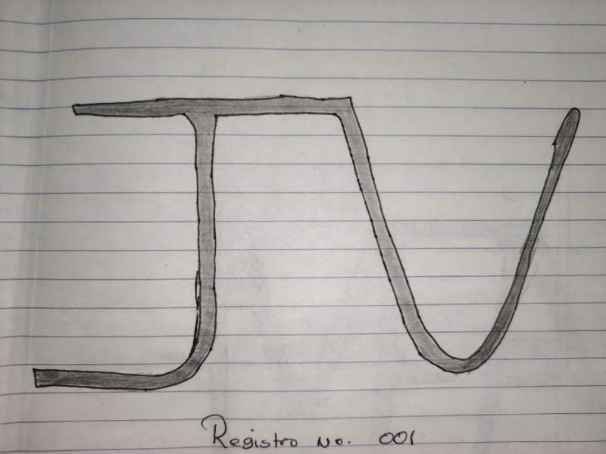 JV
Registro No. 001